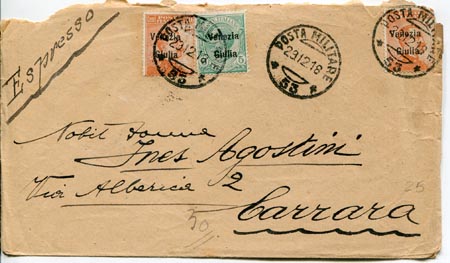 Espresso
Venezia
Giulia
Venezia
Giulia
5
POSTA MILITARE
53
POSTA MILITARE
23.12.18
53
POSTA MILITARE
53
Venezia
Giulia
Nobil Donna
Ines Agostini
Via Alberica 2
Carrara
50
25